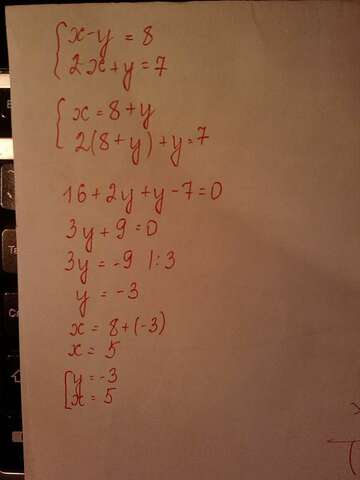 x-y = 8
2x+y=7
x = 8+y
2(8+y)+y=7
16+2y+y-7=0
3y+9=0
3y=-9 |:3
y = -3
x = 8+(-3)
x = 5
y=-3
x=5